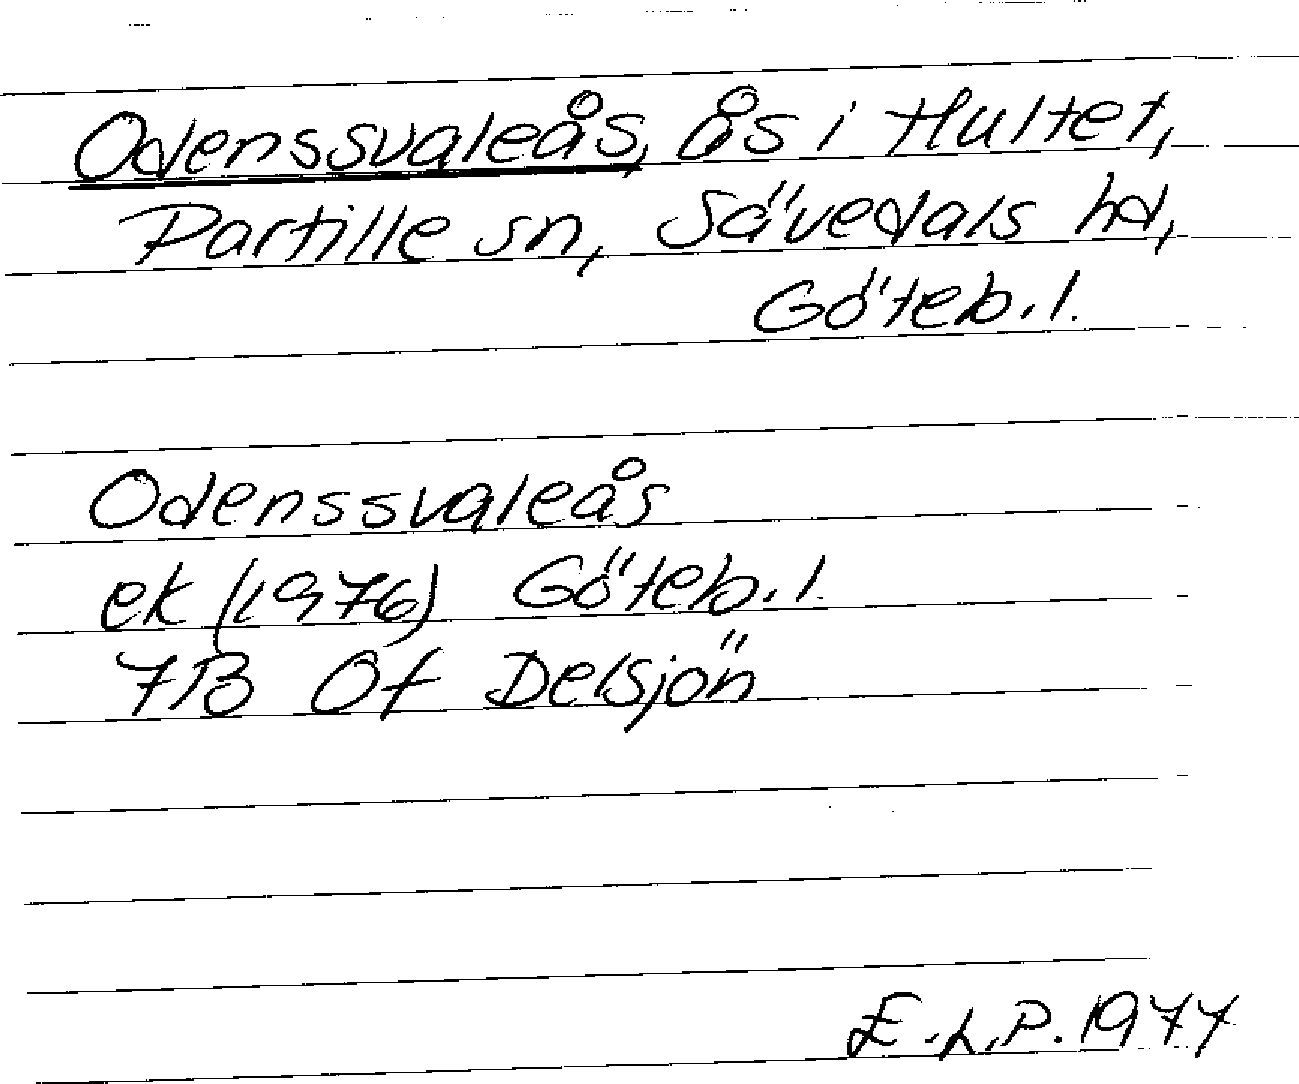 Odenssvaleås, ås i Hultet,
Partille sn, Sävedals hd,
Göteb. l.
Odenssvaleås
ek (1976) Göteb. l.
7B Of Delsjön
E.L.P. 1977